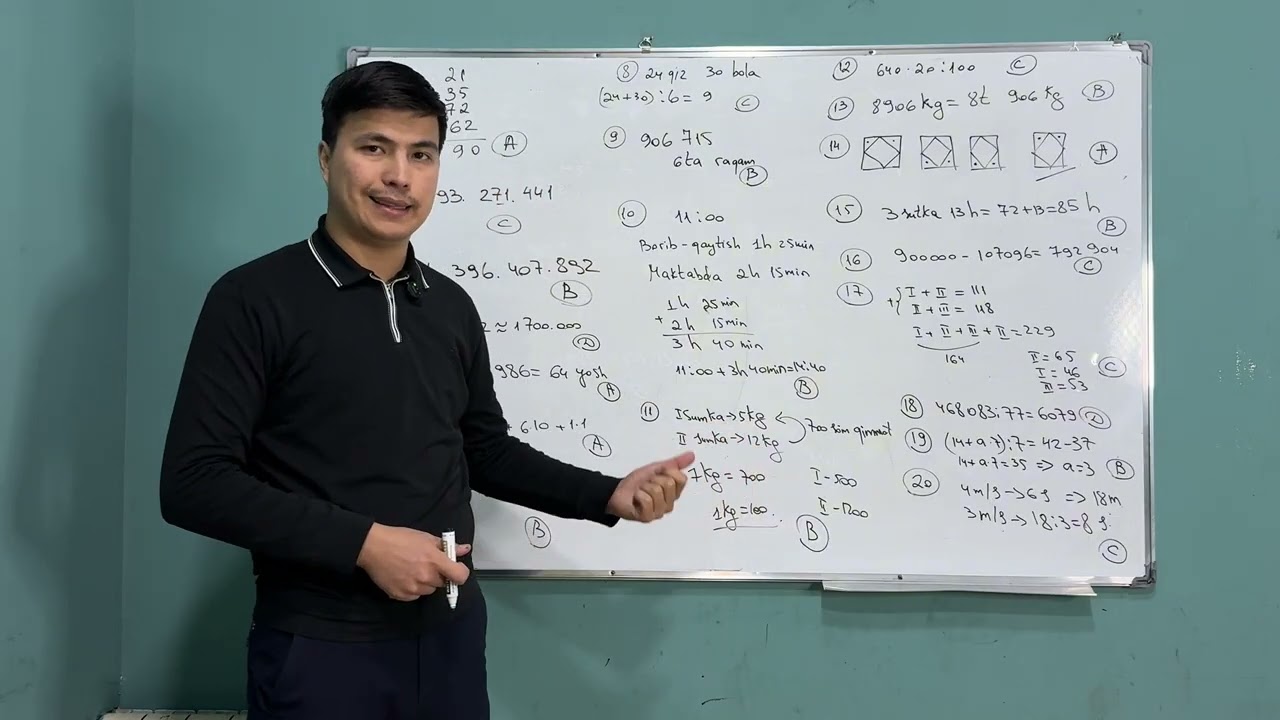 21
35
72
62
90 A
93. 271. 441
C
396. 407. 892
B
2 ≈ 1700.000
D
986 = 64 yosh
A
+ 6·10 + 1·1
A
B
8 24 qiz 30 bola
(24+30):6 = 9
C
9 906 715
6ta raqam
B
10 11:00
Borib-qaytish 1h 25min
Maktabda 2h 15min
1h 25min
+ 2h 15min
3h 40 min
11:00 + 3h 40min = 14:40
B
11 I sumka → 5kg
II sumka → 12kg
700 som qimmat
7kg = 700 I - 500
1kg = 100. II - 1200
B
12 640·20:100 C
13 8906 kg = 8t 906 kg B
14 A
15 3 sutka 13h = 72+13 = 85 h
B
16 900000 - 107096 = 792 904
C
17 I + II = 111
+ II + III = 118
I + II + III + II = 229
164
II = 65
I = 46
III = 53
C
18 468083:77 = 6079 D
19 (14+a·7):7 = 42-37
14+a·7=35 => a=3 B
20 4m/s → 6s => 18m
3m/s → 18:3=8 s
C